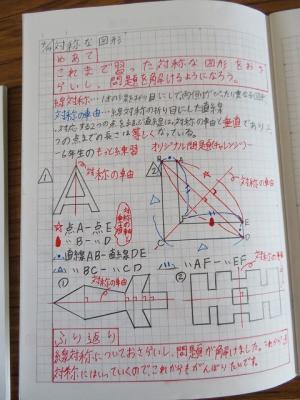 対称な図形
めあて
これまで習った対称な図形をおさ
らいし、問題を解けるようになろう。
線対称…1本の直線を折り目にして、両側がぴったり重なる図形
対称の軸…線対称の折り目にした直線
対応する2つの点を結ぶ直線は、対称の軸と垂直であり、
つの点までの長さは等しくなっている。
6年生のもっと練習 オリジナル問題(チャレンジ)
① 対称の軸 ②
点A-点E
〃B-〃D
直線AB-直線DE
〃BC-〃CD
〃AF-〃EF
① 対称の軸 ② 対称の軸
ふり返り
線対称についておさらいし、問題が解けました。これから点
対称にはいっていくのでこれからもがんばりたいです。